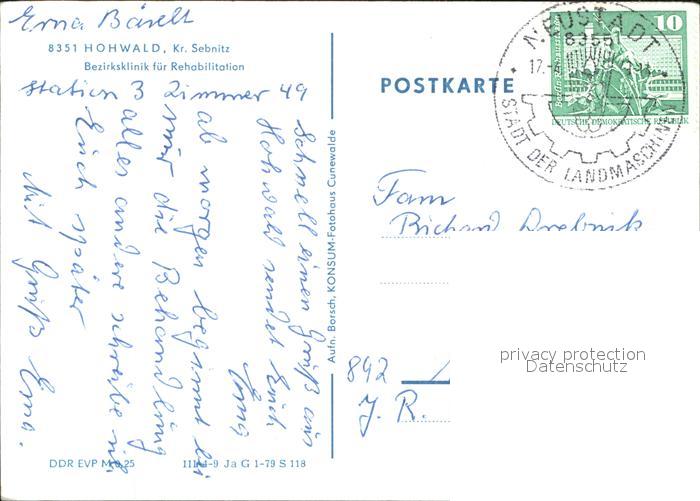 Erna Bäselt
8351 HOHWALD, Kr. Sebnitz
Bezirksklinik für Rehabilitation
Station 3 Zimmer 49
Schnell einen Gruß aus
Hohwald sendet Euch
Erna,
ab morgen beginnt bei
mir die Behandlung
alles andere schreibe ich
Euch später
Mit Gruß Erna.
DDR EVP M 0,25
Ja G 1-79 S 118
Aufn. Borsch, KONSUM-Fotohaus Cunewalde
POSTKARTE
NEUSTADT
8355
17.
STADT DER LANDMASCHINEN
10
DEUTSCHE DEMOKRATISCHE REPUBLIK
Fam
Richard
892
J. R.
privacy protection
Datenschutz